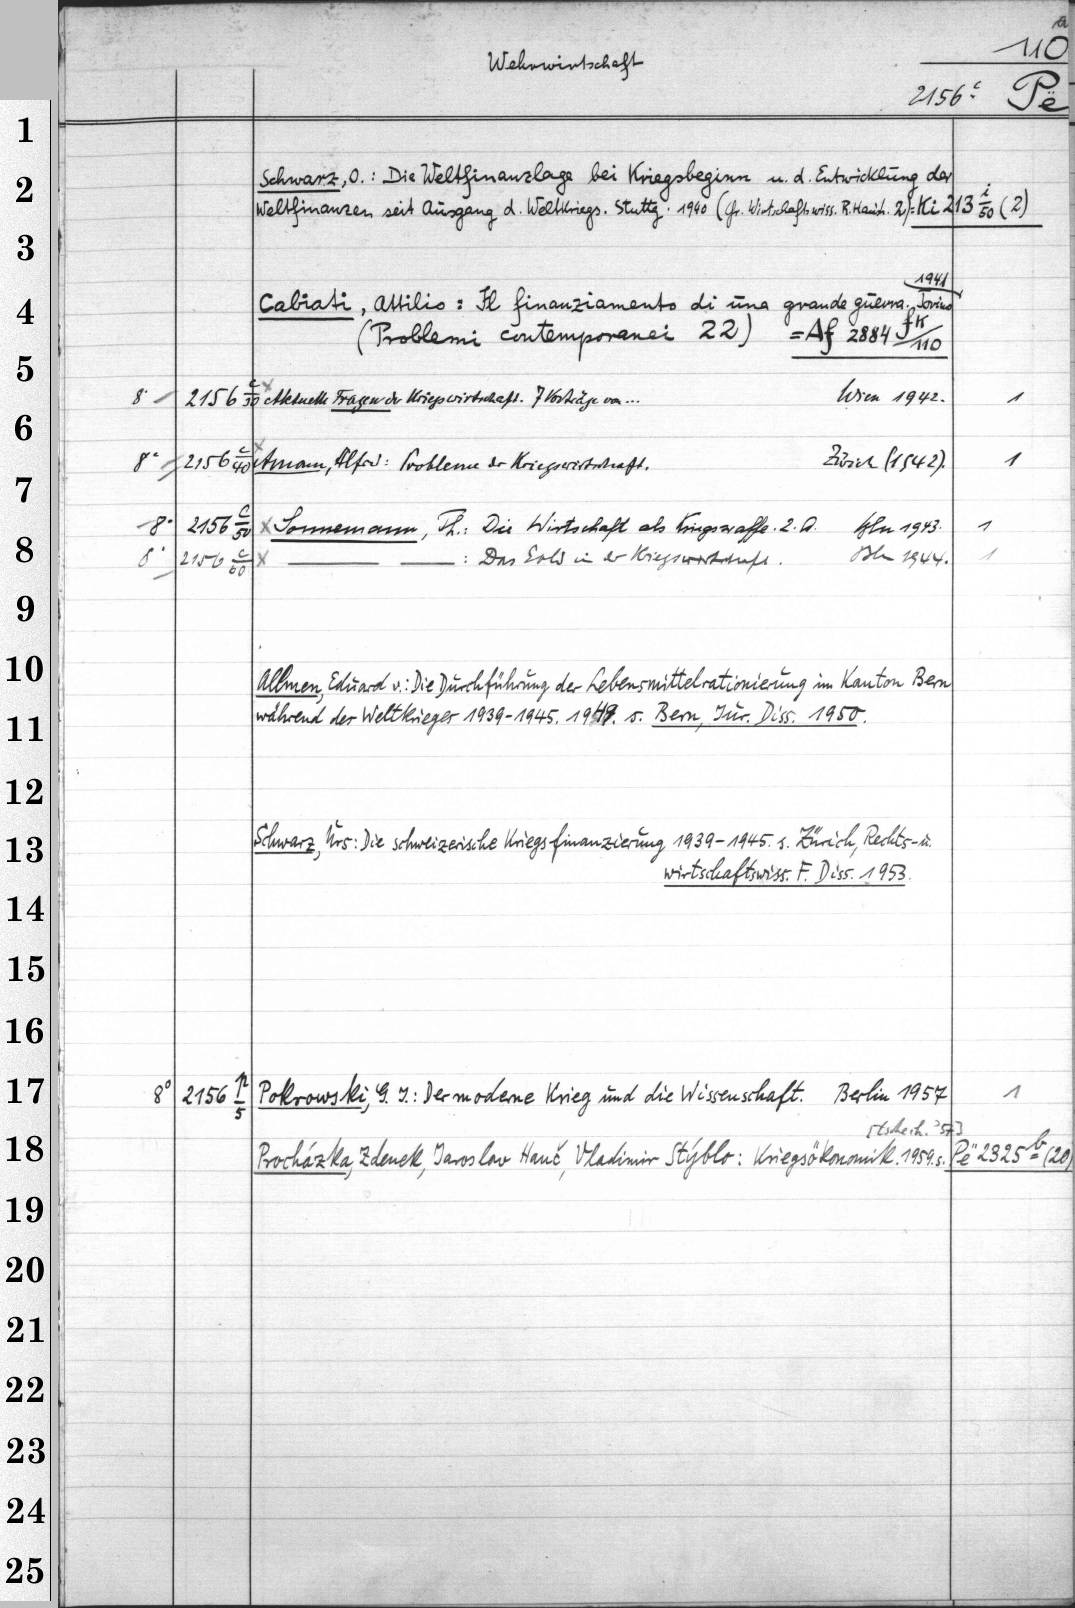 a
110
Wehrwirtschaft
2156 c Pë
1
2 Schwarz, O.: Die Weltfinanzlage bei Kriegsbeginn u. d. Entwicklung der
Weltfinanzen seit Ausgang d. Weltkriegs. Stuttg. 1940 (fr. Wirtschaftswiss. R. Hausch. 2) = Ki 213 i/50 (2)
3
1941
4 Cabiati, Attilio: Il finanziamento di una grande guerra. Torino
(Problemi contemporanei 22) = Af 2884 fk/110
5
8° 2156 c/30 x Aktuelle Fragen der Kriegswirtschaft. 7 Vorträge von... Wien 1942. 1
6
8° 2156 c/40 x Amann, Alfred: Probleme der Kriegswirtschaft. Zürich (1942). 1
7
8° 2156 c/50 x Sonnemann, Th.: Die Wirtschaft als Kriegswaffe. 2. A. Bln 1943. 1
8 8° 2156 c/60 x — — : Das Gold in der Kriegswirtschaft. Bln 1944. 1
9
10 Allmen, Eduard v.: Die Durchführung der Lebensmittelrationierung im Kanton Bern
11 während der Weltkrieges 1939-1945. 1949. s. Bern, Jur. Diss. 1950.
12
13 Schwarz, Urs: Die schweizerische Kriegsfinanzierung 1939-1945. s. Zürich, Rechts- u.
wirtschaftswiss. F. Diss. 1953.
14
15
16
17 8° 2156 p/5 Pokrowski, G. I.: Der moderne Krieg und die Wissenschaft. Berlin 1957 1
[tschech. '57]
18 Procházka, Zdenek, Jaroslav Hauč, Vladimir Stýblo: Kriegsökonomik. 1959. s. Pë 2325 b (20)
19
20
21
22
23
24
25